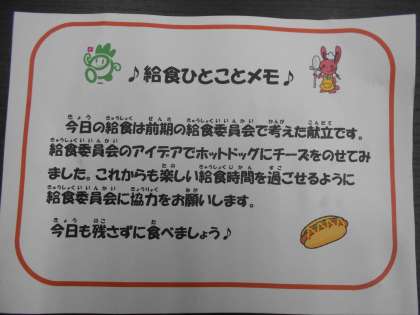 ♪給食ひとことメモ♪
今日の給食は前期の給食委員会で考えた献立です。
給食委員会のアイデアでホットドッグにチーズをのせてみ
ました。これからも楽しい給食時間を過ごせるように
給食委員会に協力をお願いします。
今日も残さずに食べましょう♪